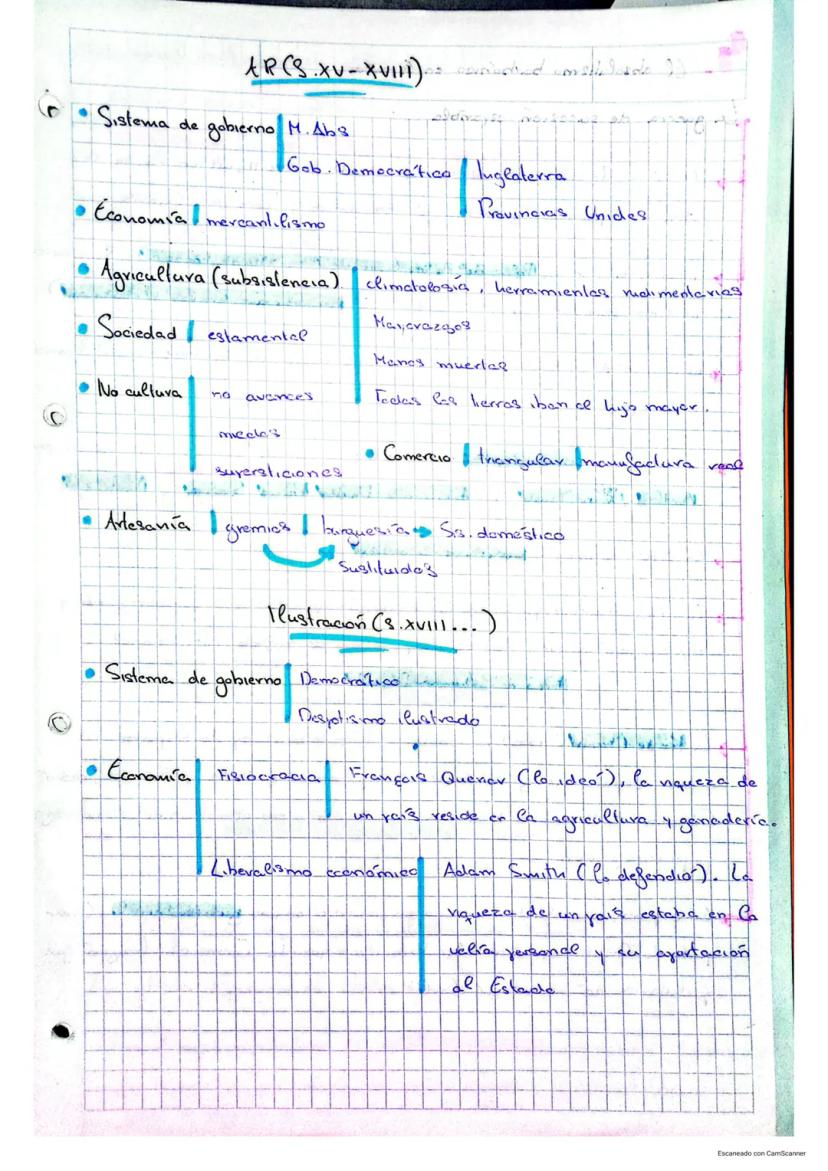 AR (S.XV-XVIII)
• Sistema de gobierno | M. Abs
Gob. Democrático | Inglaterra
Provincias Unidas
• Economía | mercantilismo
• Agricultura (subsistencia) | climatología, herramientas rudimentarias
Mayorazgos
Manos muertas
Todas las tierras iban al hijo mayor.
• Sociedad | estamental
• No cultura | no avances
miedos
supersticiones
• Comercio | triangular | manufactura real
• Artesanía | gremios | burguesía → Sis. doméstico
Sustituidos
Ilustración (S.XVIII...)
• Sistema de gobierno | Democrático
Despotismo ilustrado
• Economía | Fisiocracia | François Quenay (lo ideó), la riqueza de
un país reside en la agricultura y ganadería.
Liberalismo económico | Adam Smith (lo defendió). La
riqueza de un país estaba en la
valía personal y su aportación
al Estado
Escaneado con CamScanner